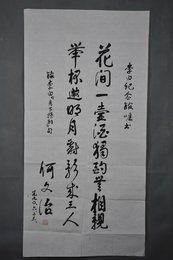 李白纪念馆嘱书
花间一壶酒独酌无相亲
举杯邀明月对影成三人
录李白月下独酌句
何文治